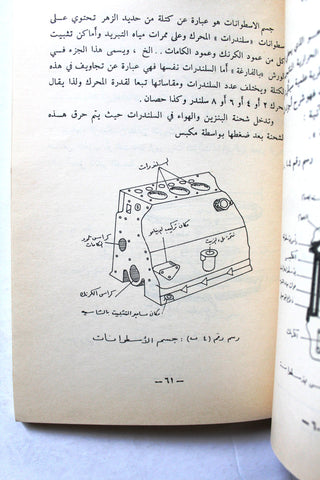 جسم الاسطوانات هو عبارة عن كتلة من حديد الزهر تحتوي على
سطوانات «سلندرات» المحرك وعلى ممرات مياه التبريد وأماكن تثبيت
كل من عمود الكرنك وعمود الكامات.. الخ ، ويسمى هذا الجزء في
ورش «بالفارغة» أما السلندرات نفسها فهي عبارة عن تجاويف في هذه
الكتلة ويختلف عدد السلندرات ومقاساتها تبعا لقدرة المحرك ولذا يقال
محرك ٢ أو ٤ أو ٦ أو ٨ سلندر وكذا حصان.
وتدخل شحنة البنزين والهواء في السلندرات حيث يتم حرق هـذه
لشحنة بعد ضغطها بواسطة مكبس
السلندرات
مكان تركيب
كراسى عمود
الكامات
كراسى الكرنك
مكان مسامير التثبيت بالشاسيه
رسم رقم (٤ ب) : جسم الأسطوانات
— ٦١ —